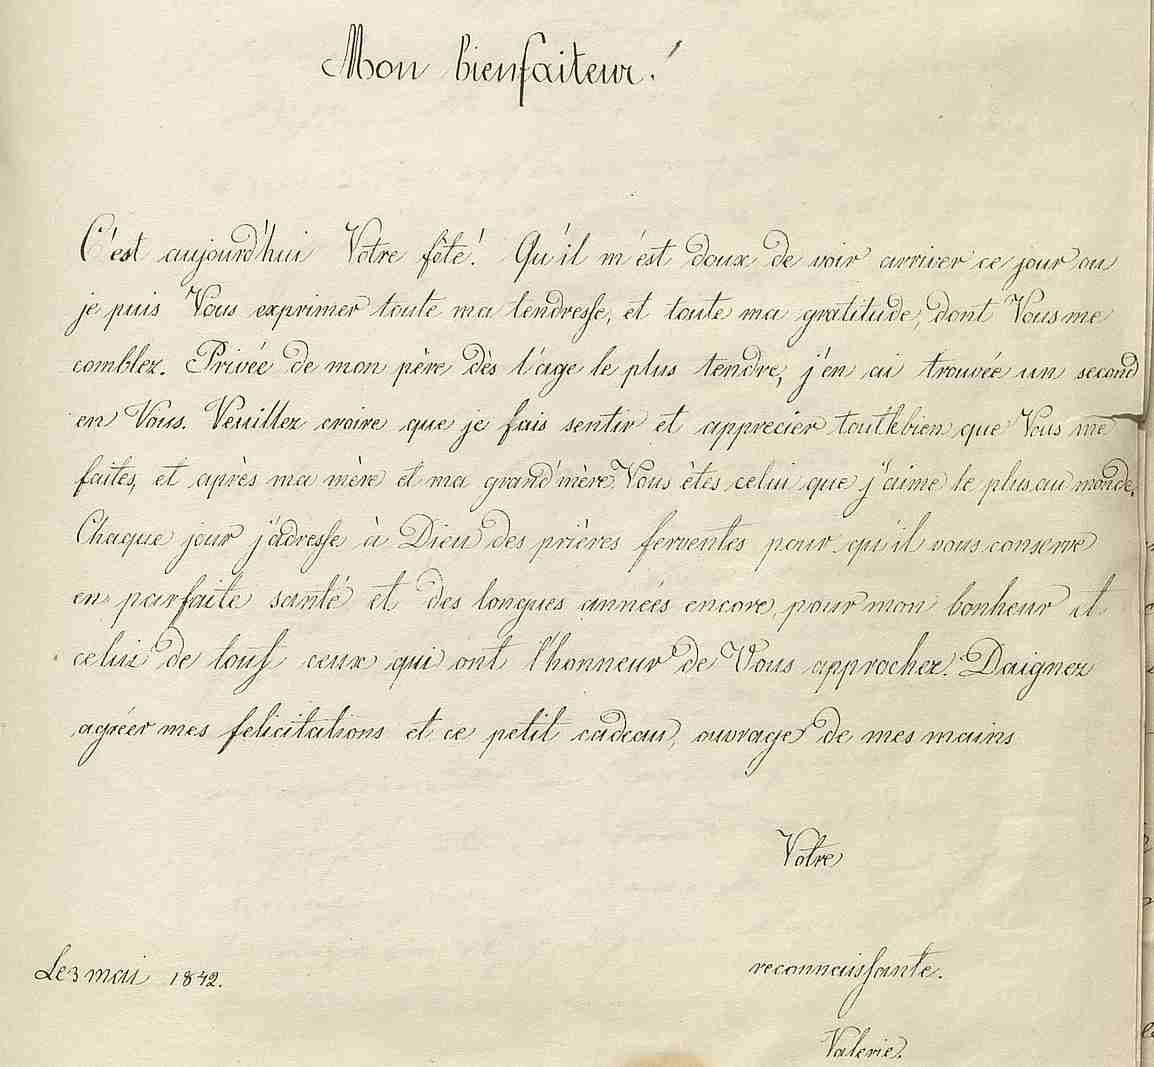 Mon bienfaiteur!
C'est aujourd'hui Votre fête! Qu'il m'est doux de voir arriver ce jour ou
je puis Vous exprimer toute ma tendresse, et toute ma gratitude, dont Vous me
comblez. Privée de mon père dès l'age le plus tendre, j'en ai trouvée un second
en Vous. Veuillez croire que je fais sentir et apprecier tout le bien que Vous me
faites, et après ma mère et ma grand'mère Vous êtes celui que j'aime le plus au monde.
Chaque jour j'adresse à Dieu des prières ferventes pour qu'il vous conserve
en parfaite santé et des longues années encore, pour mon bonheur et
celui de tous ceux qui ont l'honneur de Vous approcher. Daignez
agréer mes felicitations et ce petit cadeau, ouvrage de mes mains
Votre
Le 3 mai 1842. reconnaissante.
Valerie.